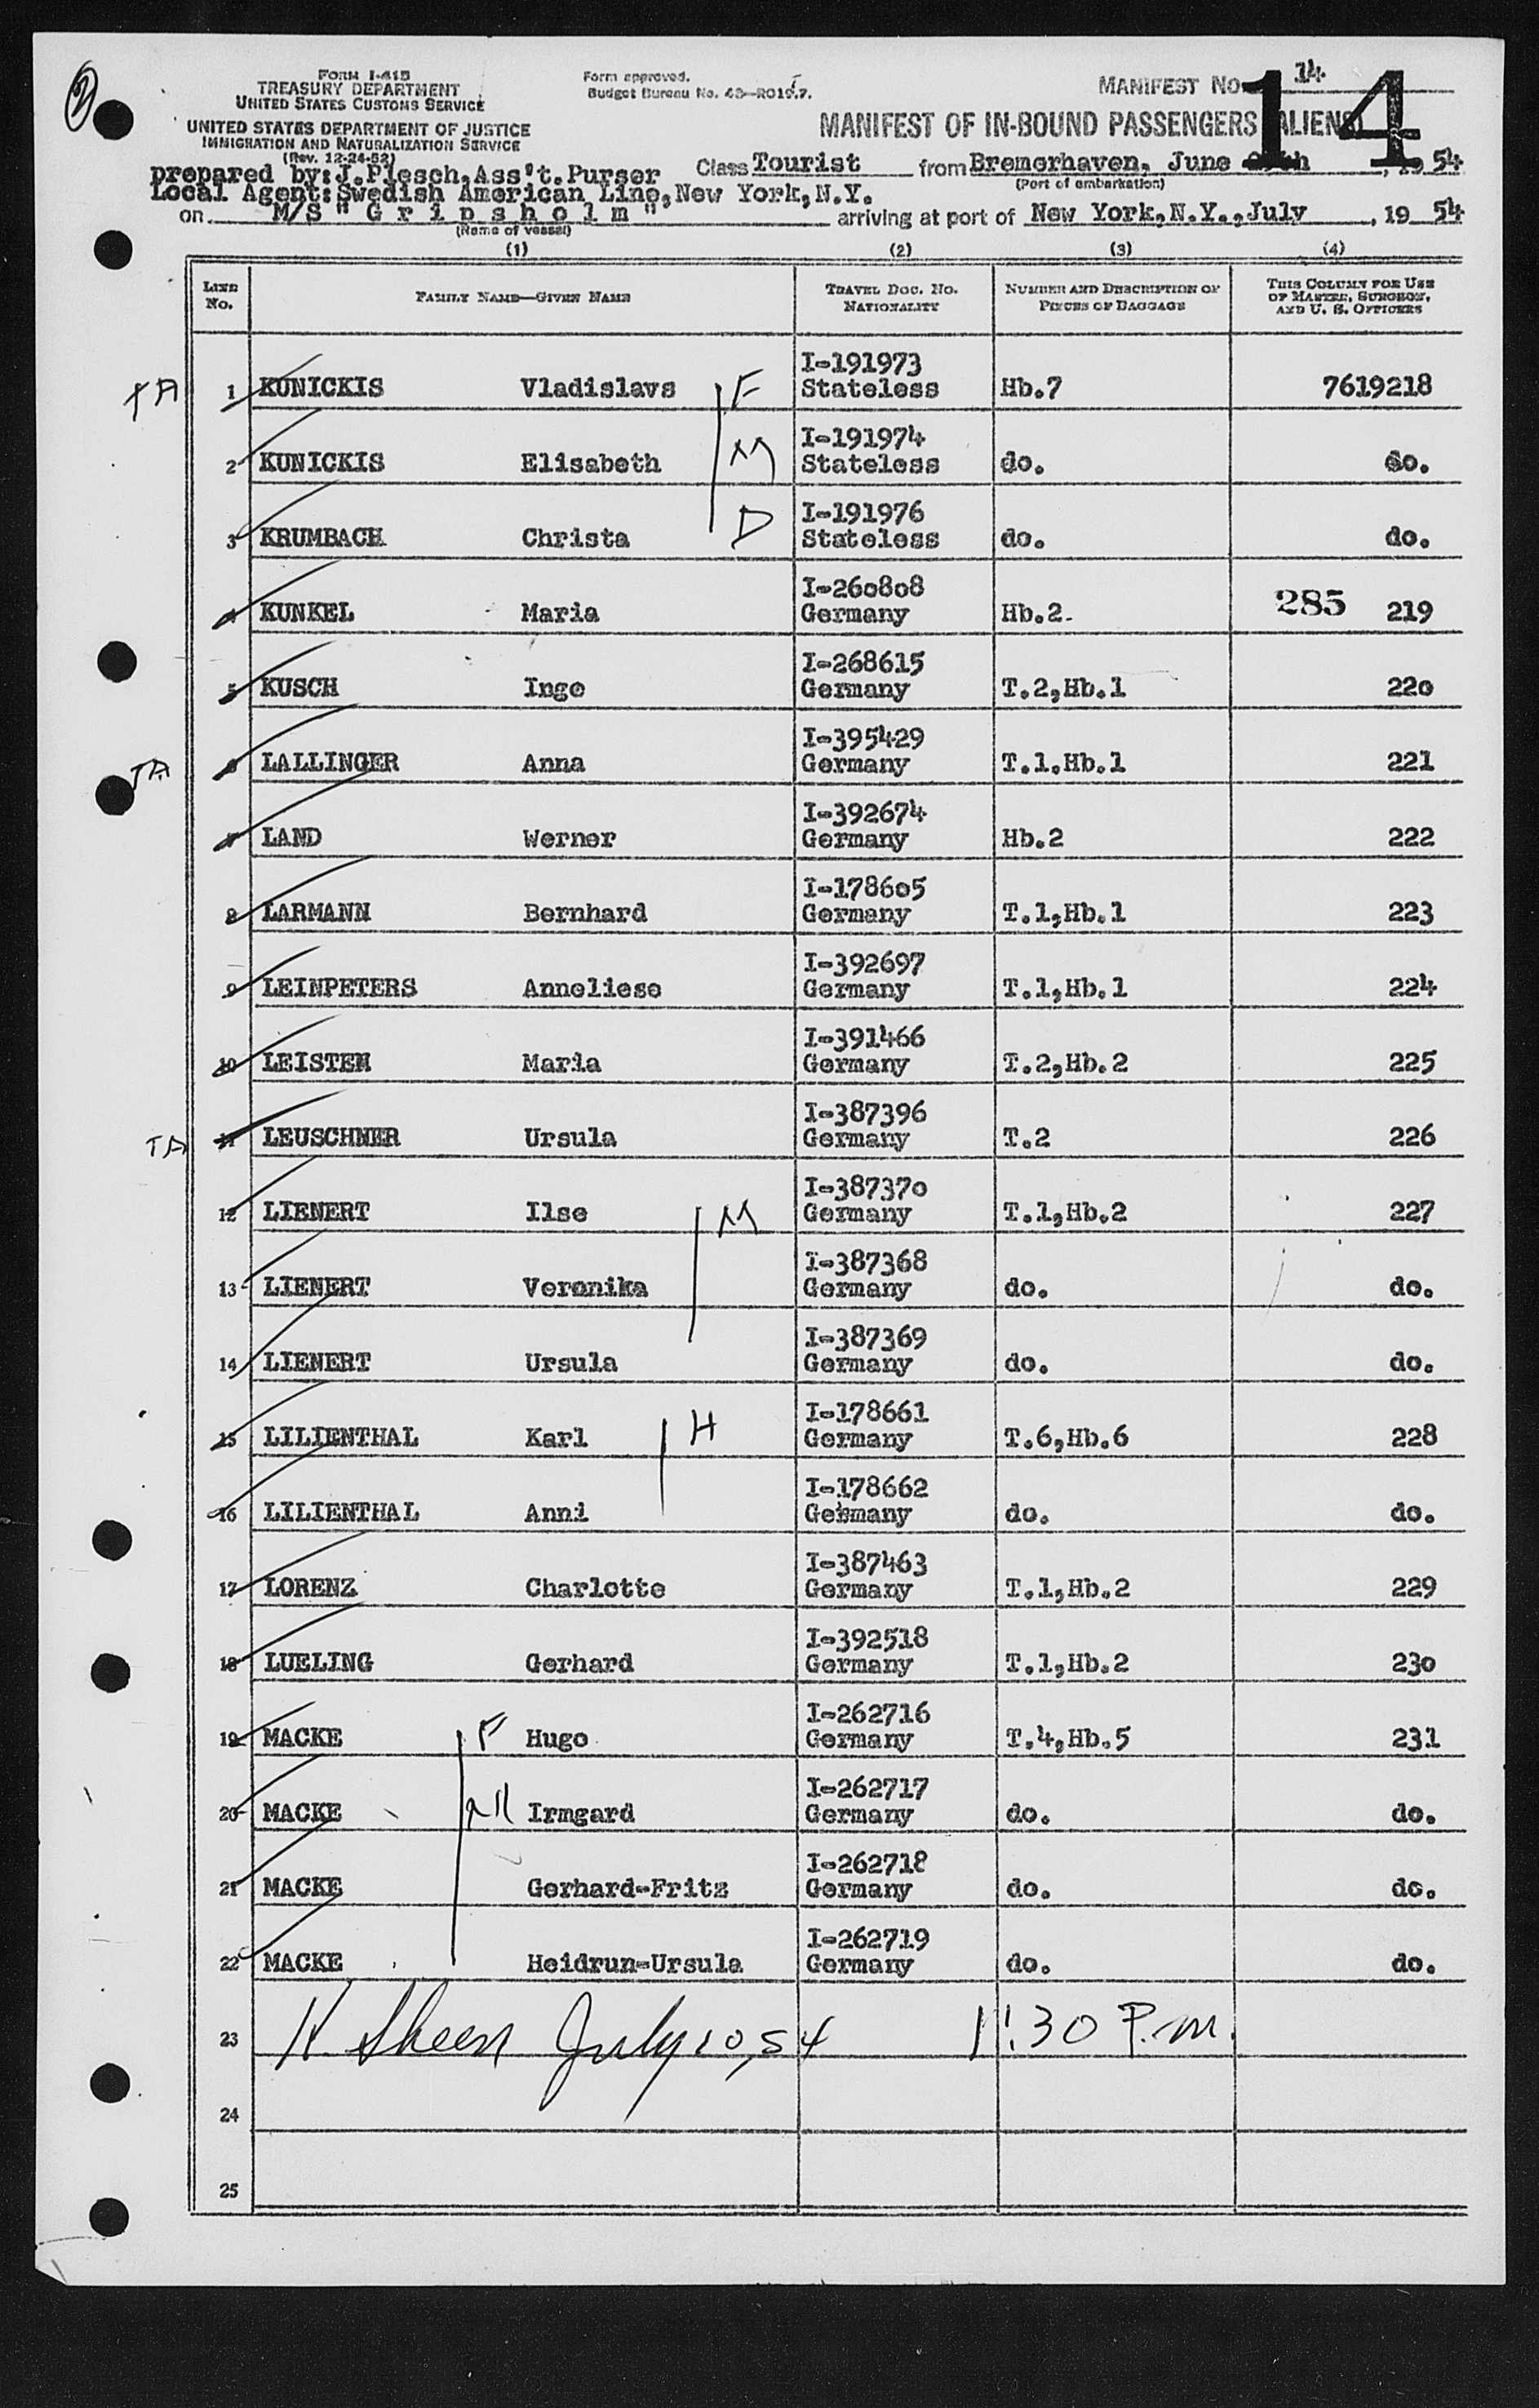 FORM I-415
TREASURY DEPARTMENT
UNITED STATES CUSTOMS SERVICE
UNITED STATES DEPARTMENT OF JUSTICE
IMMIGRATION AND NATURALIZATION SERVICE
(Rev. 12-24-52)
Form approved.
Budget Bureau No. 43-R015.7.
MANIFEST No. 14
14
MANIFEST OF IN-BOUND PASSENGERS (ALIENS)
prepared by: J.Plesch,Ass't.Purser Class Tourist from Bremerhaven, June , 19 54
(Port of embarkation)
Local Agent: Swedish American Line, New York,N.Y.
on M/S " G r i p s h o l m " arriving at port of New York,N.Y.,July , 19 54
(Name of vessel)
(1) (2) (3) (4)
LINE No. FAMILY NAME—GIVEN NAME TRAVEL DOC. NO. NATIONALITY NUMBER AND DESCRIPTION OF PIECES OF BAGGAGE THIS COLUMN FOR USE OF MASTER, SURGEON, AND U. S. OFFICERS
I-191973
TA 1 KUNICKIS Vladislavs F Stateless Hb.7 7619218
I-191974
2 KUNICKIS Elisabeth M Stateless do. do.
I-191976
3 KRUMBACH Christa D Stateless do. do.
I-260808
4 KUNKEL Maria Germany Hb.2. 285 219
I-268615
5 KUSCH Inge Germany T.2,Hb.1 220
I-395429
TA 6 LALLINGER Anna Germany T.1.Hb.1 221
I-392674
7 LAND Werner Germany Hb.2 222
I-178605
8 LARMANN Bernhard Germany T.1,Hb.1 223
I-392697
9 LEINPETERS Anneliese Germany T.1,Hb.1 224
I-391466
10 LEISTEN Maria Germany T.2,Hb.2 225
I-387396
TA 11 LEUSCHNER Ursula Germany T.2 226
I-387370
12 LIENERT Ilse M Germany T.1,Hb.2 227
I-387368
13 LIENERT Veronika Germany do. do.
I-387369
14 LIENERT Ursula Germany do. do.
I-178661
15 LILIENTHAL Karl H Germany T.6,Hb.6 228
I-178662
16 LILIENTHAL Anni Germany do. do.
I-387463
17 LORENZ Charlotte Germany T.1,Hb.2 229
I-392518
18 LUELING Gerhard Germany T.1,Hb.2 230
I-262716
19 MACKE F Hugo Germany T.4,Hb.5 231
I-262717
20 MACKE M Irmgard Germany do. do.
I-262718
21 MACKE Gerhard-Fritz Germany do. do.
I-262719
22 MACKE Heidrun-Ursula Germany do. do.
23 H. Sheen July 10, 54 1:30 P.m.
24
25